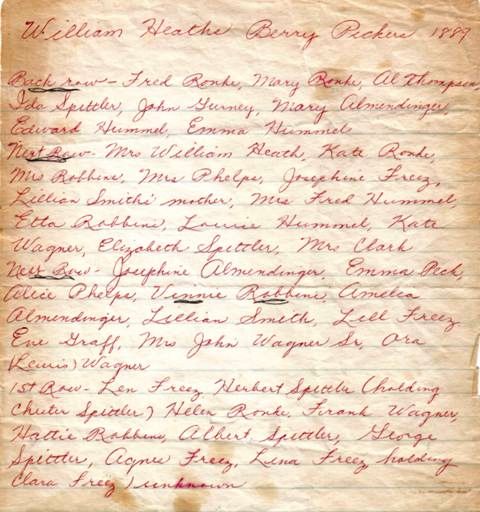 William Heaths Berry Pickers 1889
Back row - Fred Ronke, Mary Ronke, Al Thompson,
Ida Spittler, John Gurney, Mary Almendinger,
Edward Hummel, Emma Hummel
Next Row - Mrs William Heath, Kate Ronke,
Mrs Robbins, Mrs Phelps, Josephine Freez,
Lillian Smiths' mother, Mrs Fred Hummel,
Etta Robbins, Laurie Hummel, Kate
Wagner, Elizabeth Spittler, Mrs Clark
Next Row - Josephine Almendinger, Emma Peck,
Alice Phelps, Vinnie Robbins, Amelia
Almendinger, Lillian Smith, Lill Freez
Eve Graff, Mrs John Wagner Sr, Ora
(Lewis) Wagner
1st Row - Len Freez Herbert Spittler (holding
Chester Spittler) Helen Ronke, Frank Wagner,
Hattie Robbins, Albert Spittler, George
Spittler, Agnes Freez, Lena Freez holding
Clara Freez) unknown